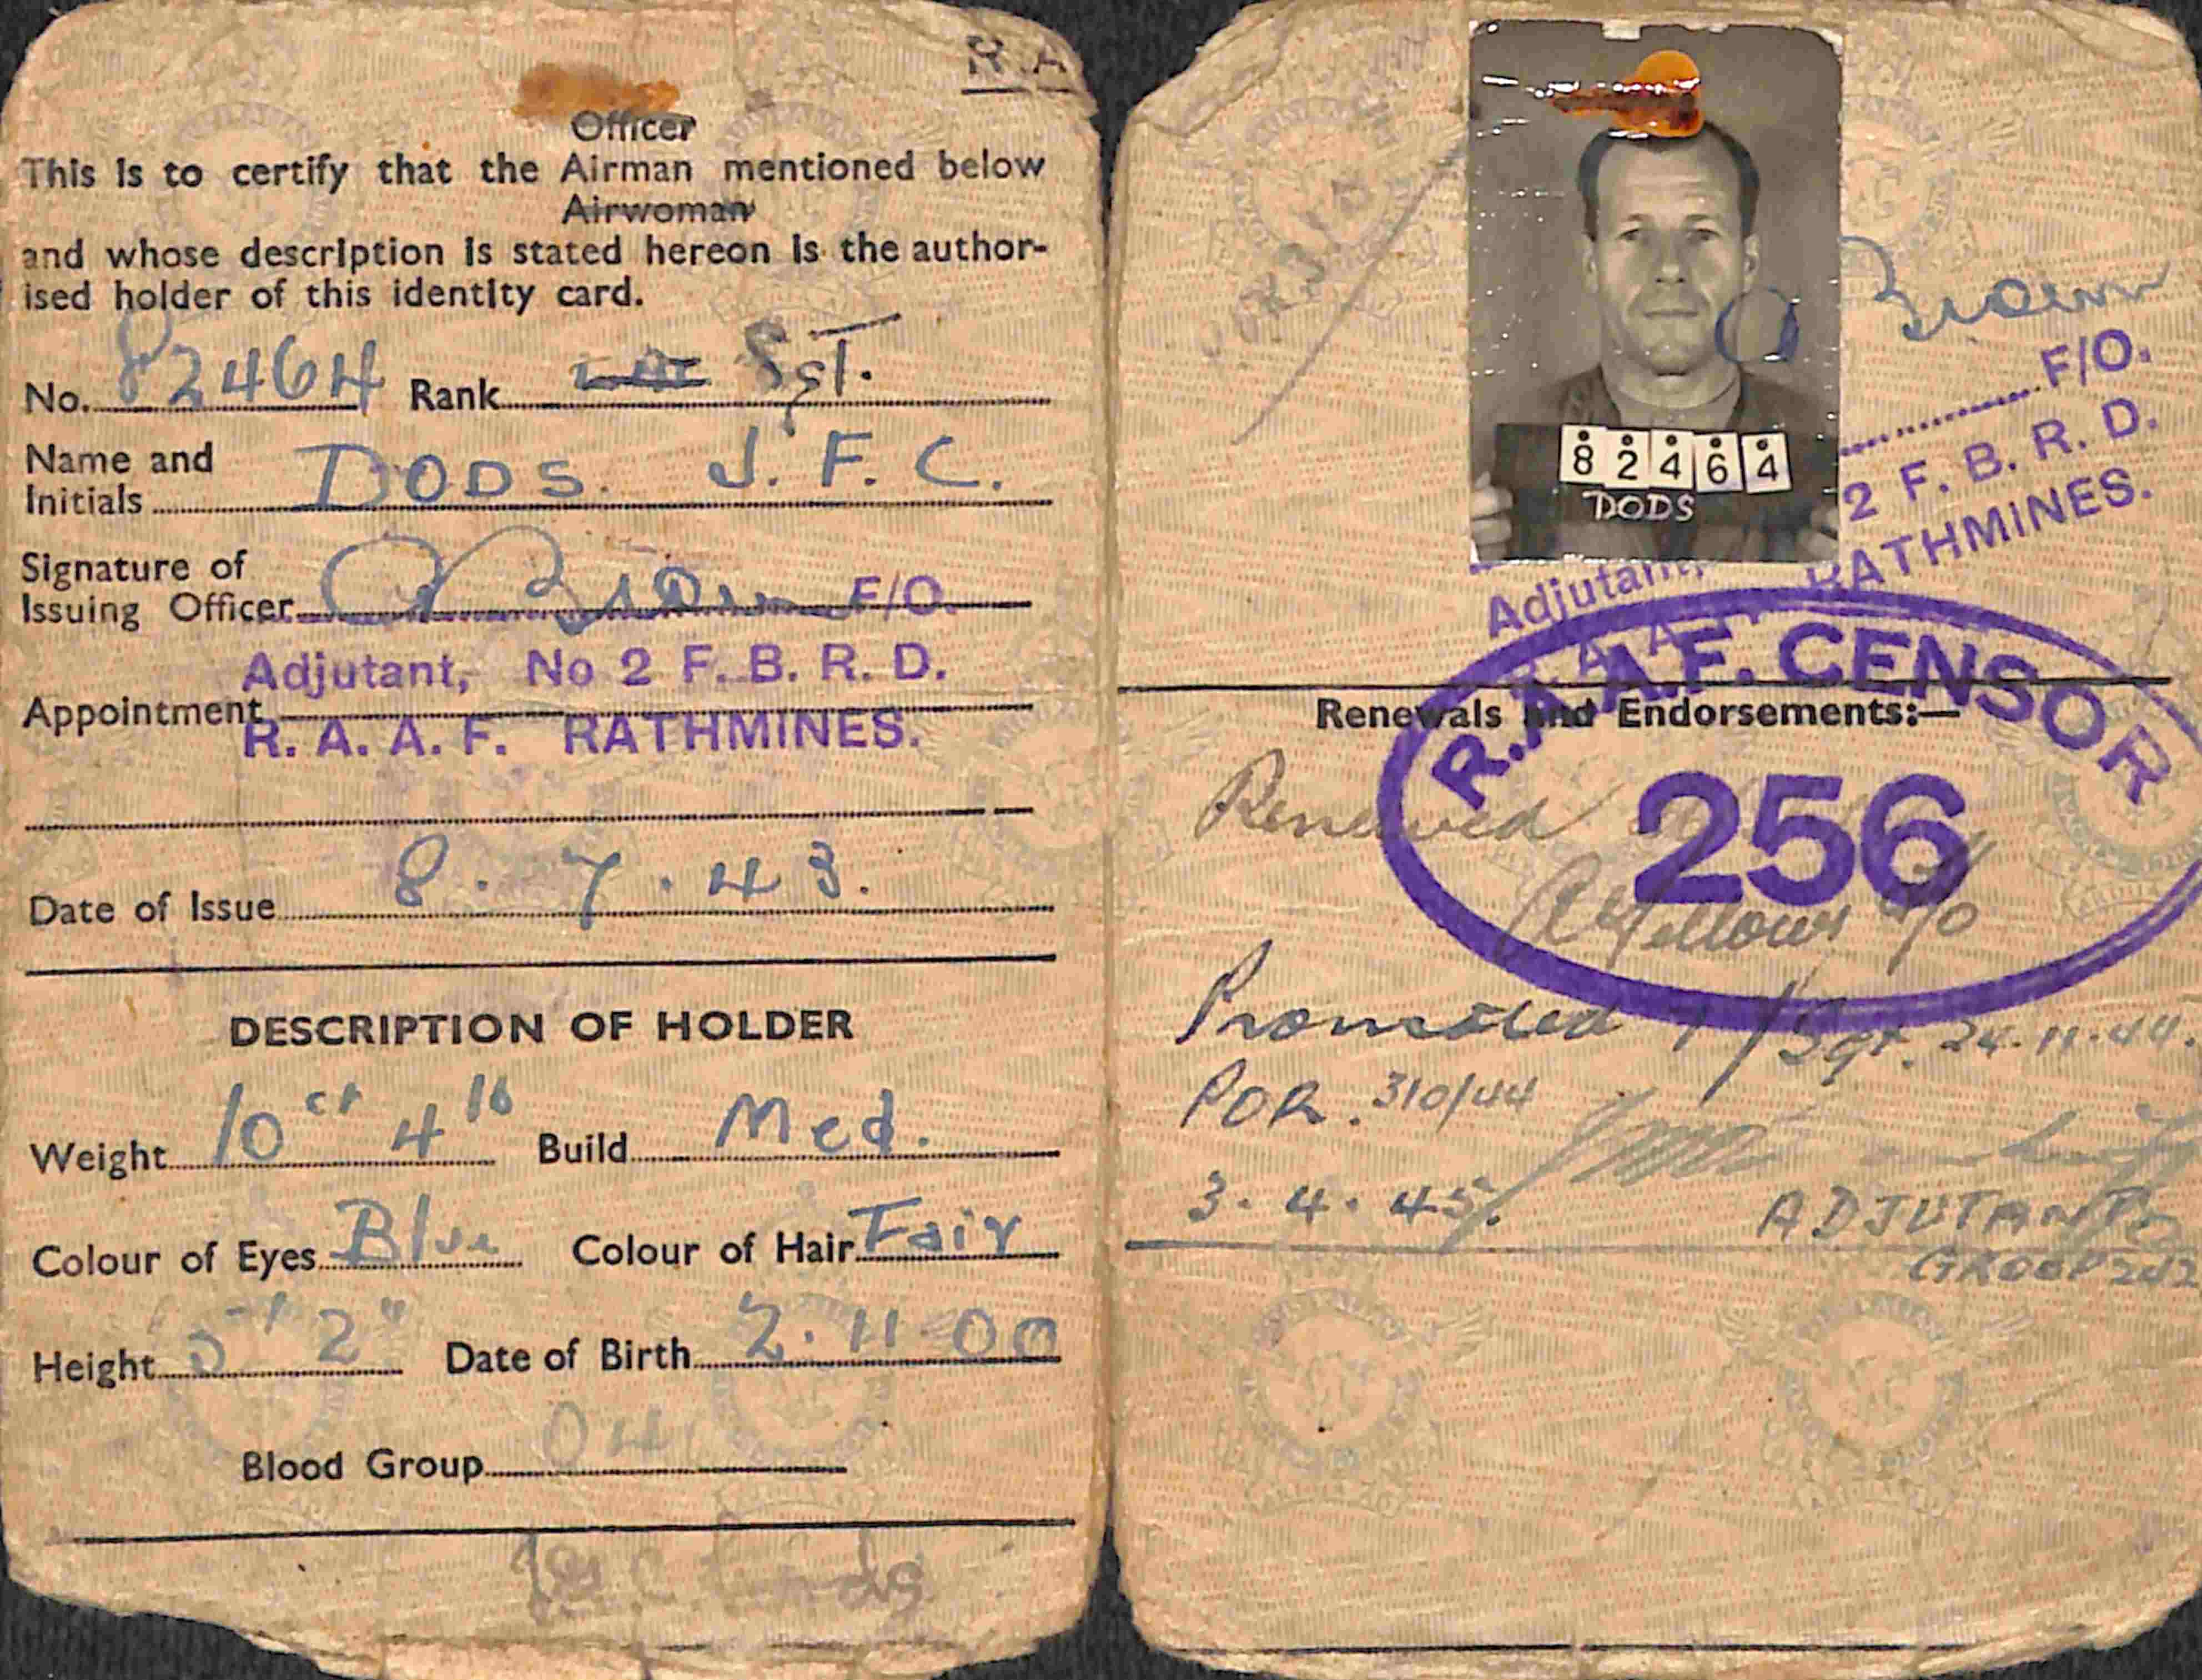 R.A
Officer
This is to certify that the Airman mentioned below
Airwoman
and whose description is stated hereon is the author-
ised holder of this identity card.
No. 82464 Rank Sgt.
Name and
Initials DODS. J. F. C.
Signature of
Issuing Officer Brown F/O.
Adjutant, No 2 F. B. R. D.
Appointment
R. A. A. F. RATHMINES.
Date of Issue 8. 7. 43.
DESCRIPTION OF HOLDER
Weight 10 st 4 lb Build Med.
Colour of Eyes Blue Colour of Hair Fair
Height 5' 2" Date of Birth 2. 11 00
Blood Group O4
Brown
F/O.
82464
DODS
2 F. B. R. D.
Adjutant,
RATHMINES.
R.A.A.F. CENSOR
Renewals and Endorsements:—
256
Renewed
Promoted T/Sgt. 24.11.44.
POR. 310/44
3. 4. 45.
ADJUTANT
GROUP